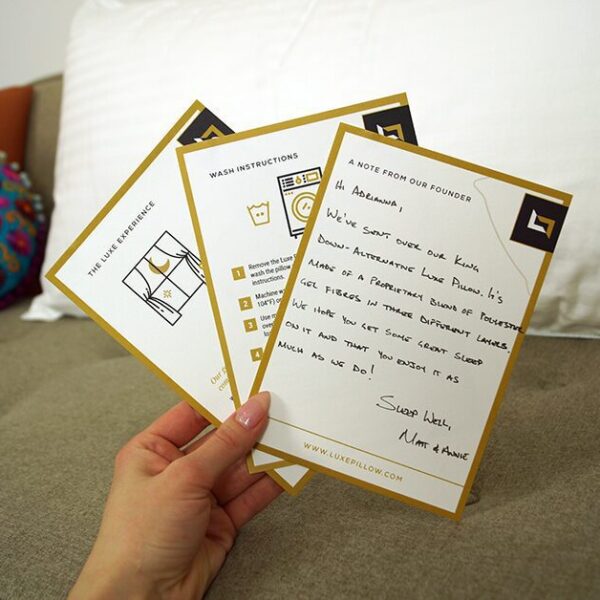 THE LUXE EXPERIENCE
WASH INSTRUCTIONS
1 Remove the Luxe
wash the pillow
instructions.
2 Machine
104°F) o
3 Use
4
A NOTE FROM OUR FOUNDER
HI ADRIANNA,
WE'VE SENT OVER OUR KING
DOWN-ALTERNATIVE LUXE PILLOW. IT'S
MADE OF A PROPRIETARY BLEND OF POLYESTER
GEL FIBRES IN THREE DIFFERENT LAYERS.
WE HOPE YOU GET SOME GREAT SLEEP
ON IT AND THAT YOU ENJOY IT AS
MUCH AS WE DO!
SLEEP WELL,
MATT & ANNIE
WWW.LUXEPILLOW.COM